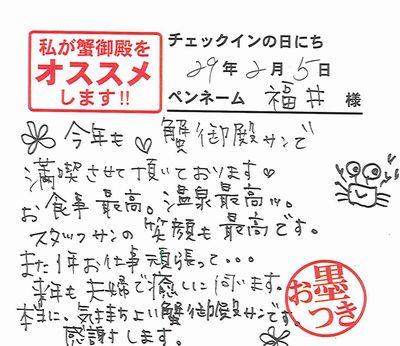 私が蟹御殿を
オススメ
します!!
チェックインの日にち
29年2月5日
ペンネーム 福井 様
今年も♡蟹御殿サンで
満喫させて頂いております♡
お食事最高。温泉最高!!。
スタッフサンの笑顔も最高です。
また1年お仕事頑張って・・・
来年も夫婦で癒しに伺います。
本当に、気持ちよい蟹御殿サンです。
感謝します。
お墨つき